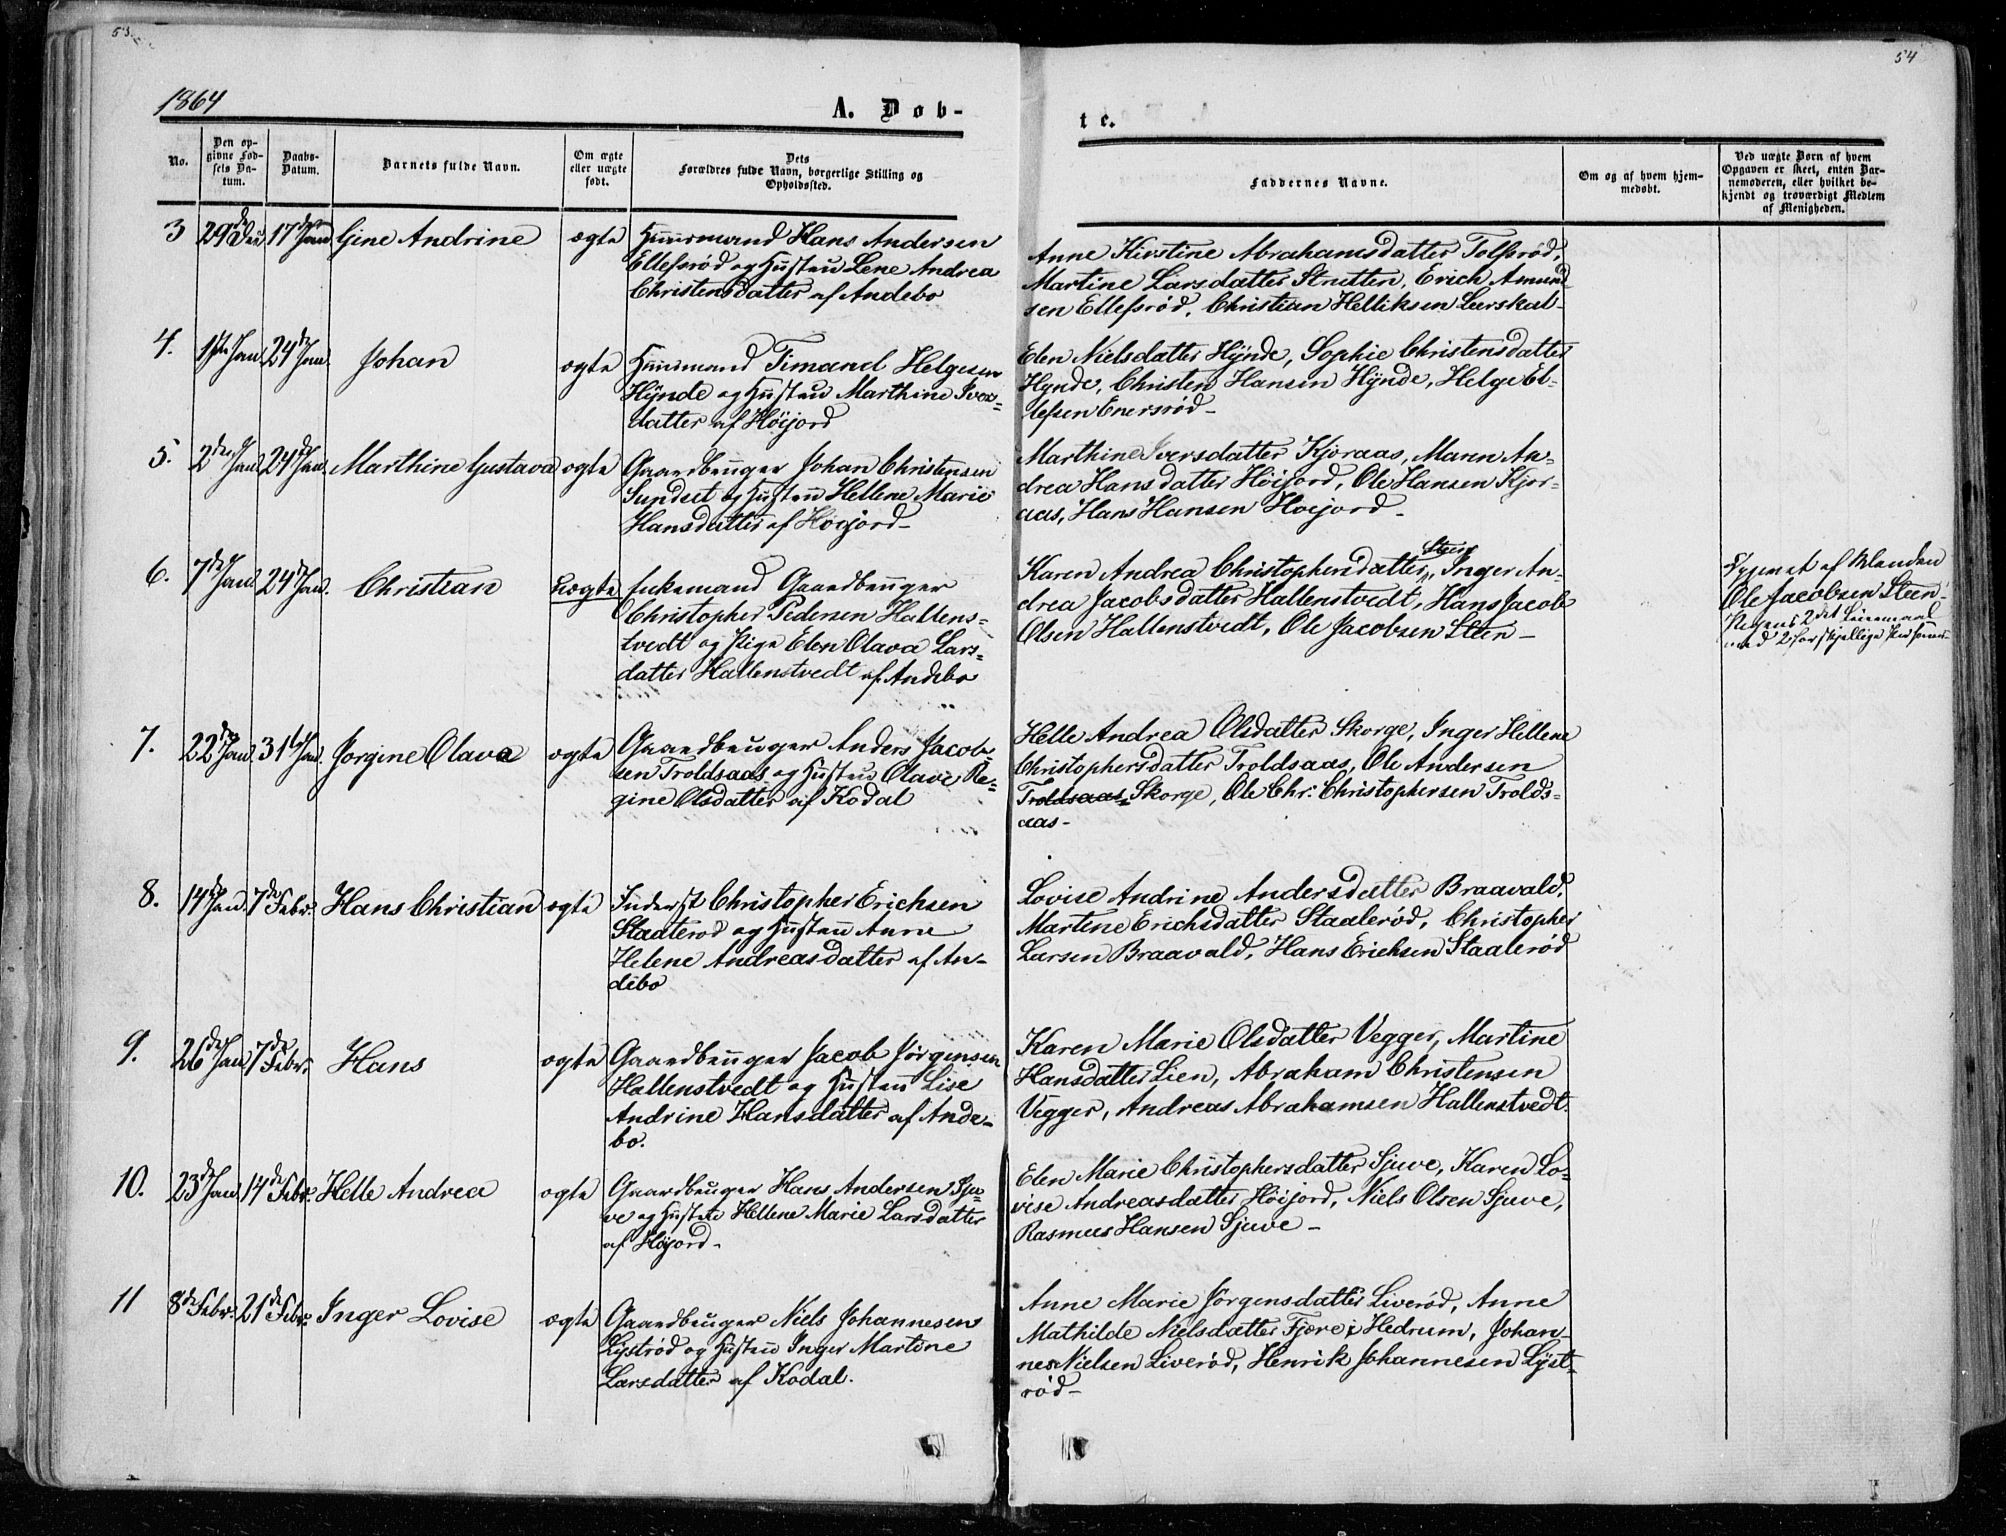 53.
54
1864
A. Døb-
te.
No.
Den op-
givne Fød-
sels Da-
tum.
Daabs-
Datum.
Barnets fulde Navn.
Om ægte
eller uægte
født.
Dets
Forældres fulde Navn, borgerlige Stilling og
Opholdssted.
Faddernes Navne.
Om og af hvem hjem-
medøbt.
Ved uægte Børn af hvem
Opgaven er skeet, enten Bar-
nemoderen, eller hvilket be-
kjendt og troværdigt Medlem
af Menigheden.
3 29de Dec 17de Jan Gine Andrine ægte Huusmand Hans Andersen
Ellefsrød og Hustru Lene Andrea
Christensdatter af Andebo
Anne Kirstine Abrahamsdatter Tolfsrød,
Martine Larsdatter Stretten, Erich Amund
sen Ellefsrød, Christian Helliksen Lerskal-
4. 1ste Jan. 24de Jan. Johan ægte Huusmand Timand Helgesen
Hÿnde og Hustru Marthine Ivers=
datter af Höijord
Elen Nielsdatter Hÿnde, Sophie Christensdatter
Hynde, Christen Hansen Hÿnde, Helge El=
lefsen Enersrød-
5. 2den Jan. 24de Jan. Marthine Gustava ægte Gaardbruger Johan Christensen
Sundset og Hustru Hellene Marie
Hansdatter af Höijord-
Marthine Iversdatter Kjøraas, Maren An=
drea Hansdatter Höijord, Ole Hansen Kjør=
aas, Hans Hansen Höijord-
6. 7de Jan. 24de Jan. Christian Uægte Enkemand Gaardbruger
Christopher Pedersen Hallens=
tvedt og Pige Elen Olava Lars=
datter Hallenstvedt af Andebo
Karen Andrea Christophersdatter Steen, Inger An=
drea Jacobsdatter Hallenstvedt, Hans Jacob
Olsen Hallenstvedt, Ole Jacobsen Steen-
Ole Jacobsen Steen-
Pigens 2det Leiermaal
med 2 forskjellige Personer-
7. 22de Jan. 31te Jan. Jørgine Olava ægte Gaardbruger Anders Jacob
sen Troldsaas og Hustru Olave Re=
gine Olsdatter af Kodal
Helle Andrea Olsdatter Skorge, Inger Hellene
Christophersdatter Troldsaas, Ole Andersen
Troldsaas Skorge, Ole Chr. Christophersen Trolds=
aas-
8. 14de Jan. 7de Febr. Hans Christian ægte Inderst Christopher Erichsen
Staalerød og Hustru Anne
Helene Andreasdatter af An-
debo
Lovise Andrine Andersdatter Braavald,
Martine Erichsdatter Staalerød, Christopher
Larsen Braavald, Hans Erichsen Staalerød
9. 26de Jan. 7de Febr. Hans ægte Gaardbruger Jacob Jørgensen
Hallenstvedt og Hustru Lise
Andrine Hansdatter af Ande-
bo.
Karen Marie Olsdatter Vegger, Martine
Hansdatter Lien, Abraham Christensen
Vegger, Andreas Abrahamsen Hallenstvedt.
10. 23de Jan. 14de Febr. Helle Andrea ægte Gaardbruger Hans Andersen Sju-
ve og Hustru Hellene Marie Larsdatter
af Höijord-
Elen Marie Christophersdatter Sjuve, Karen Lo-
vise Andreasdatter Höijord, Niels Olsen Sjuve,
Rasmus Hansen Sjuve-
11 8de Febr. 21de Febr. Inger Lovise ægte Gaardbruger Niels Johannesen
Lystrød og Hustru Inger Martine
Larsdatter af Kodal.
Anne Marie Jørgensdatter Liverød, Anne
Mathilde Nielsdatter Fjære i Hedrum, Johan-
nes Nielsen Liverød, Henrik Johannesen Lÿst-
rød-